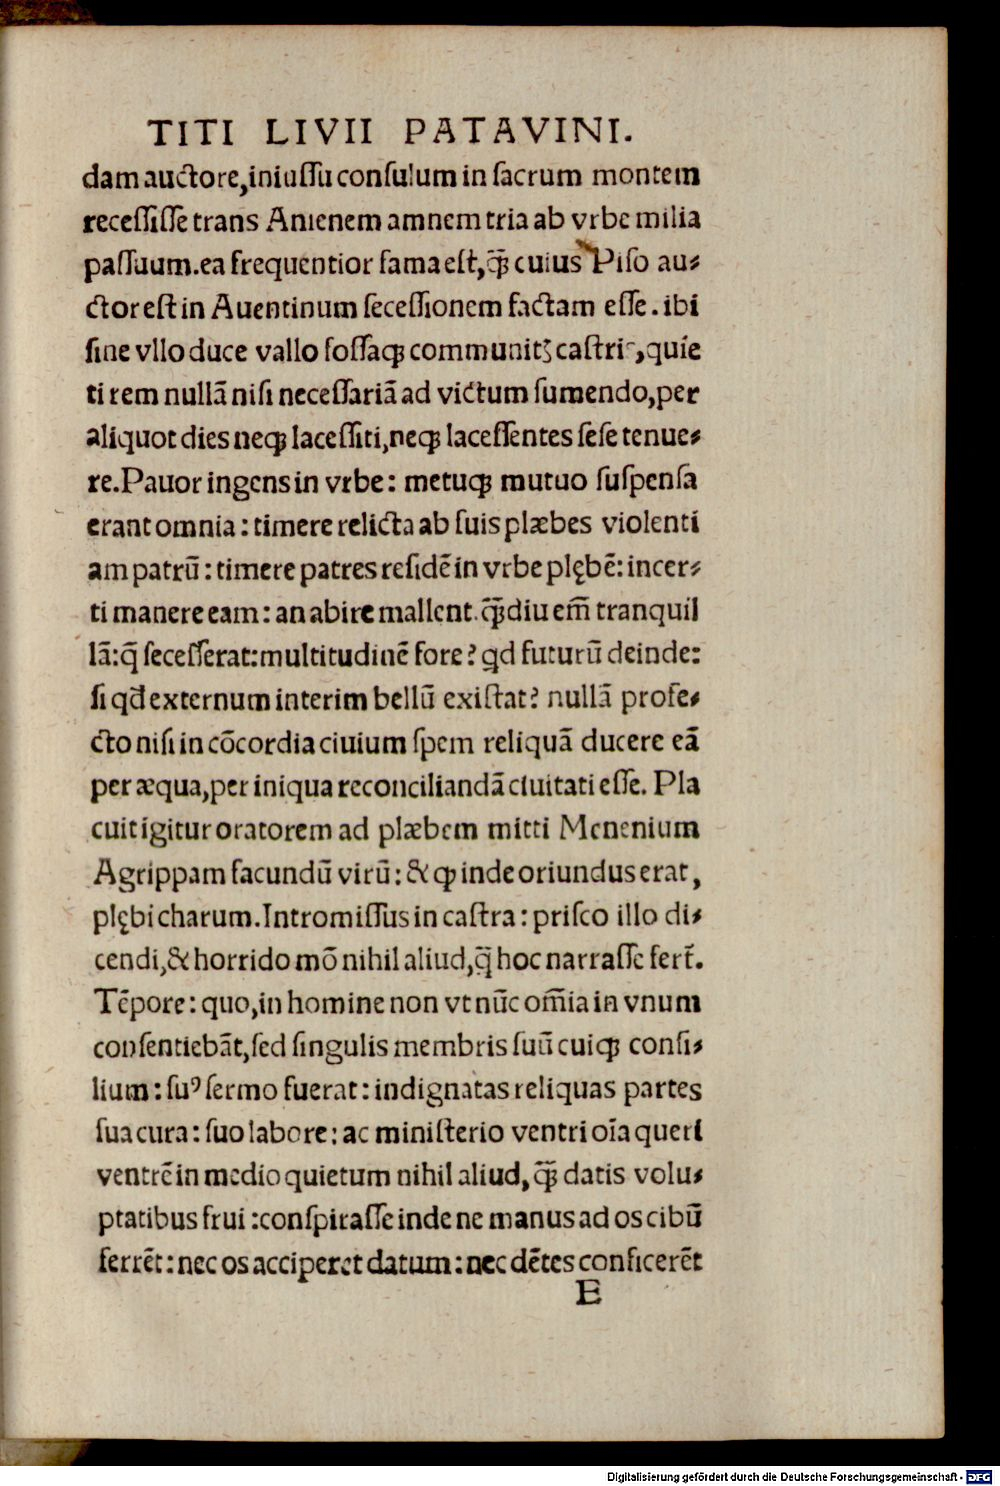 TITI LIVII PATAVINI.
dam auctore,iniuſſu conſulum in ſacrum montem
receſſiſſe trans Anienem amnem tria ab vrbe milia
paſſuum.ea frequentior fama eſt,q̃ꝫ cuius Piſo au⸗
ctor eſt in Auentinum ſeceſſionem factam eſſe. ibi
ſine vllo duce vallo foſſaqꝫ communitꝫ caſtris,quie
ti rem nullā niſi neceſſariā ad victum ſumendo,per
aliquot dies neqꝫ laceſſiti,neqꝫ laceſſentes ſeſe tenue⸗
re.Pavor ingens in vrbe: metuqꝫ mutuo ſuſpenſa
erant omnia: timere relicta ab ſuis plæbes violenti
am patrū: timere patres reſidē in vrbe plębē: incer⸗
ti manere eam: an abire mallent. q̃ꝫdiu em̄ tranquil
lā:q̄ ſeceſſerat:multitudinē fore? qd futurū deinde:
ſi qd externum interim bellū exiſtat? nullā profe⸗
cto niſi in cōcordia ciuium ſpem reliquā ducere eā
per æqua,per iniqua reconciliandā ciuitati eſſe. Pla
cuit igitur oratorem ad plæbem mitti Menenium
Agrippam facundū virū: & ꝙ inde oriundus erat,
plębi charum.Intromiſſus in caſtra: priſco illo di⸗
cendi,& horrido mō nihil aliud,q̄ꝫ hoc narraſſe fert̃.
Tēpore: quo,in homine non vt nūc om̄ia in vnum
conſentiebāt,ſed ſingulis membris ſuū cuiqꝫ conſi⸗
lium: ſuꝰ ſermo fuerat: indignatas reliquas partes
ſua cura: ſuo labore: ac miniſterio ventri oīa queri
ventrē in medio quietum nihil aliud, q̃ꝫ datis volu⸗
ptatibus frui :conſpiraſſe inde ne manus ad os cibū
ferrēt: nec os acciperet datum: nec dētes conficerēt
E
Digitalisierung gefördert durch die Deutsche Forschungsgemeinschaft - DFG